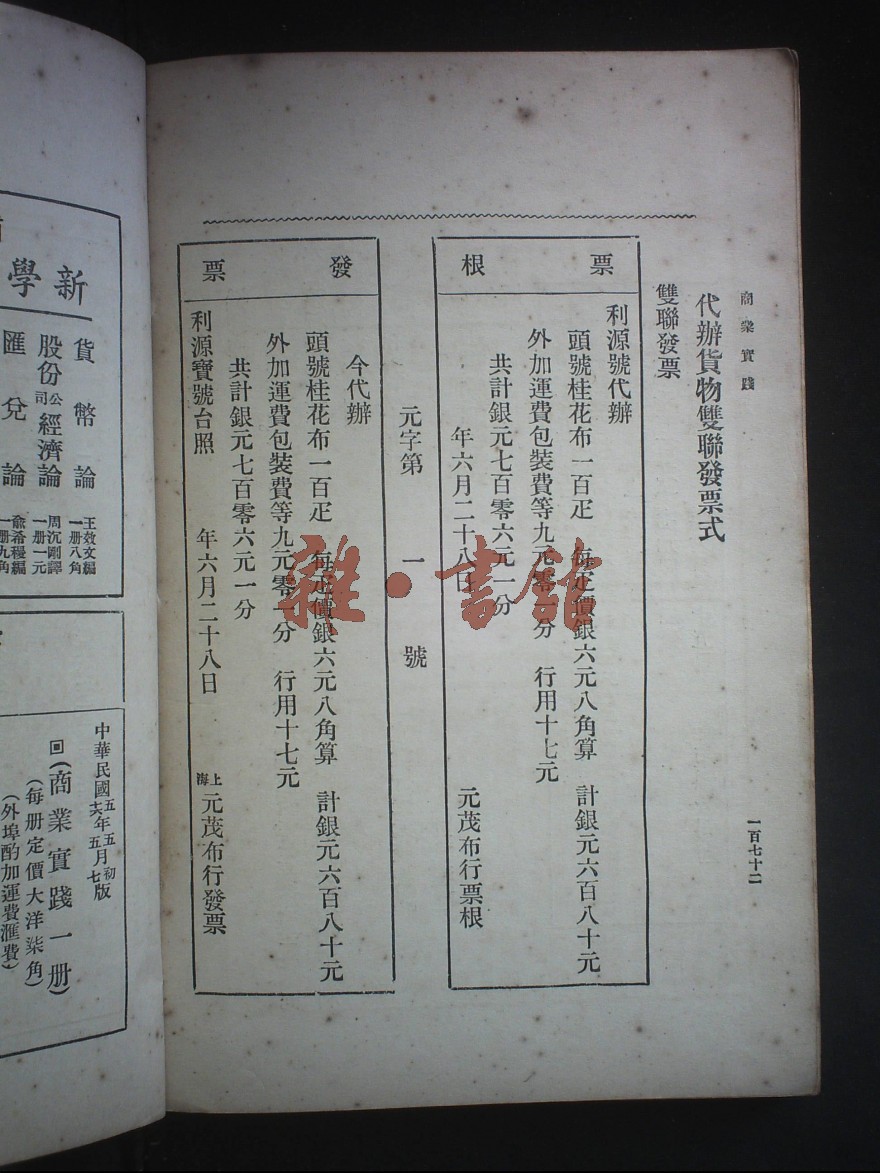 商業實踐
一百七十二
代辦貨物雙聯發票式
雙聯發票
票根
利源號代辦
頭號桂花布一百疋 每疋價銀六元八角算 計銀元六百八十元
外加運費包裝費等九元零一分 行用十七元
共計銀元七百零六元一分
年六月二十八日
元茂布行票根
元字第 一 號
發票
今代辦
頭號桂花布一百疋 每疋價銀六元八角算 計銀元六百八十元
外加運費包裝費等九元零一分 行用十七元
共計銀元七百零六元一分
年六月二十八日
利源寶號台照
上海元茂布行發票
雜·書館
新學
貨幣論 王效文編 一册八角
股份公司經濟論 周沉剛譯 一册一元
匯兌論 俞希稷編 一册九角
中華民國五年五月初版
十六年五月七版
回(商業實踐一册)
(每册定價大洋柒角)
(外埠酌加運費滙費)